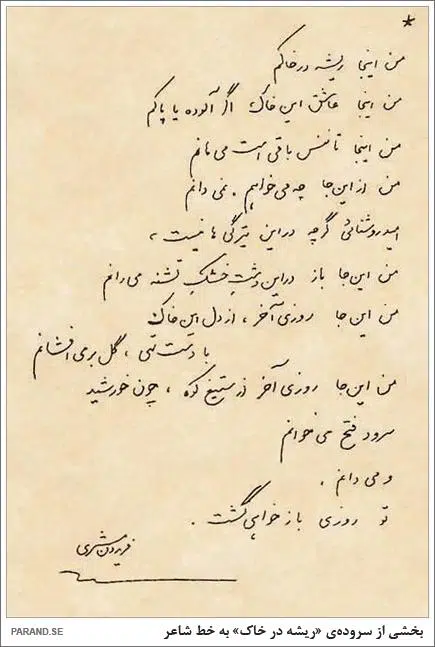 *
من اینجا ریشه در خاکم
من اینجا عاشق این خاک اگر آلوده یا پاکم
من اینجا تا نفس باقی است می مانم
من از این جا چه می خواهم، نمی دانم
امید روشنائی گرچه در این تیرگی ها نیست،
من این جا باز در این دشتِ خشکِ تشنه می رانم
من این جا روزی آخر، از دل این خاک
با دست تهی، گل بر می افشانم
من این جا روزی آخر از ستیغ کوه، چون خورشید
سرود فتح می خوانم
و می دانم،
تو روزی باز خواهی گشت.
فریدون مشیری
بخشی از سروده‌ی «ریشه در خاک» به خط شاعر
PARAND.SE